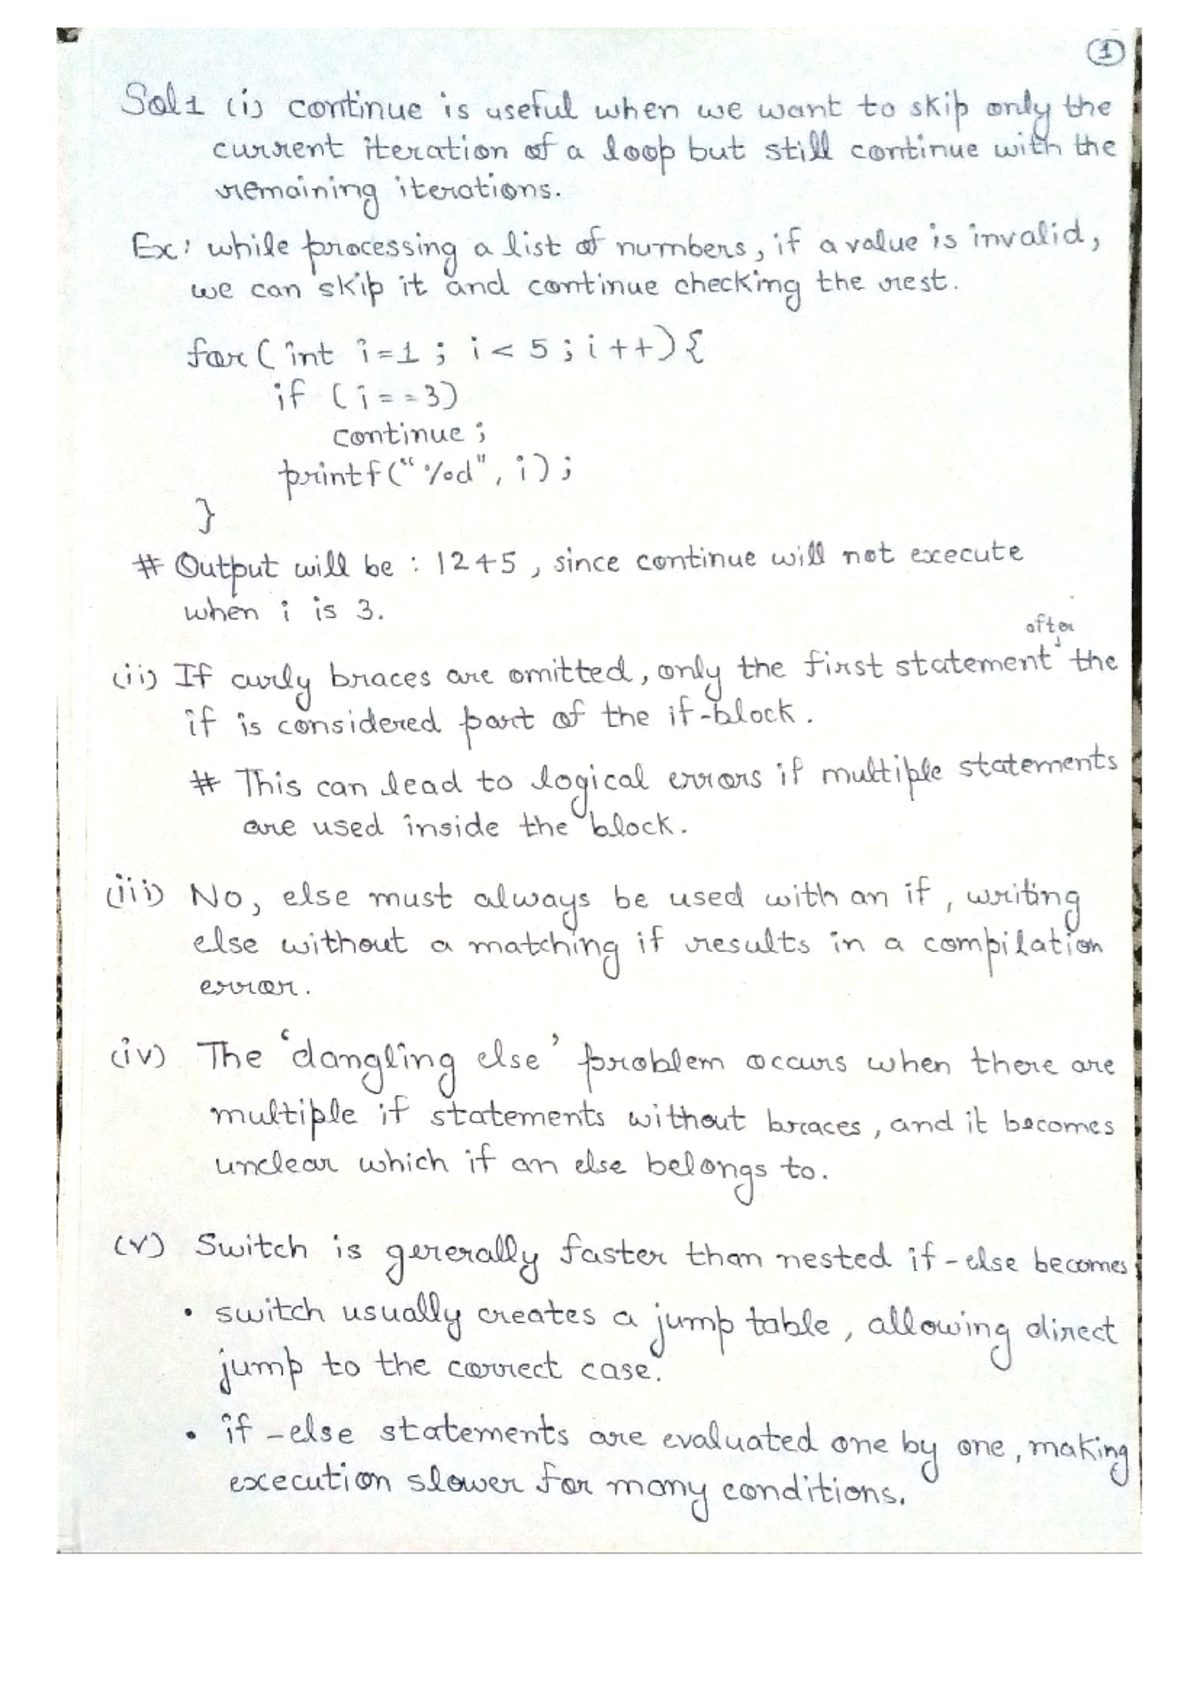 1
Sol1 (i) continue is useful when we want to skip only the
current iteration of a loop but still continue with the
remaining iterations.
Ex: while processing a list of numbers, if a value is invalid,
we can skip it and continue checking the rest.
for ( int i=1 ; i < 5 ; i ++) {
if ( i = = 3)
continue ;
printf("%d", i) ;
}
# Output will be : 1245, since continue will not execute
when i is 3.
after
(ii) If curly braces are omitted, only the first statement the
if is considered part of the if-block.
# This can lead to logical errors if multiple statements
are used inside the block.
(iii) No, else must always be used with an if, writing
else without a matching if results in a compilation
error.
(iv) The 'dangling else' problem occurs when there are
multiple if statements without braces, and it becomes
unclear which if an else belongs to.
(v) Switch is gererally faster than nested if-else becomes
• switch usually creates a jump table, allowing direct
jump to the correct case.
• if-else statements are evaluated one by one, making
execution slower for many conditions.